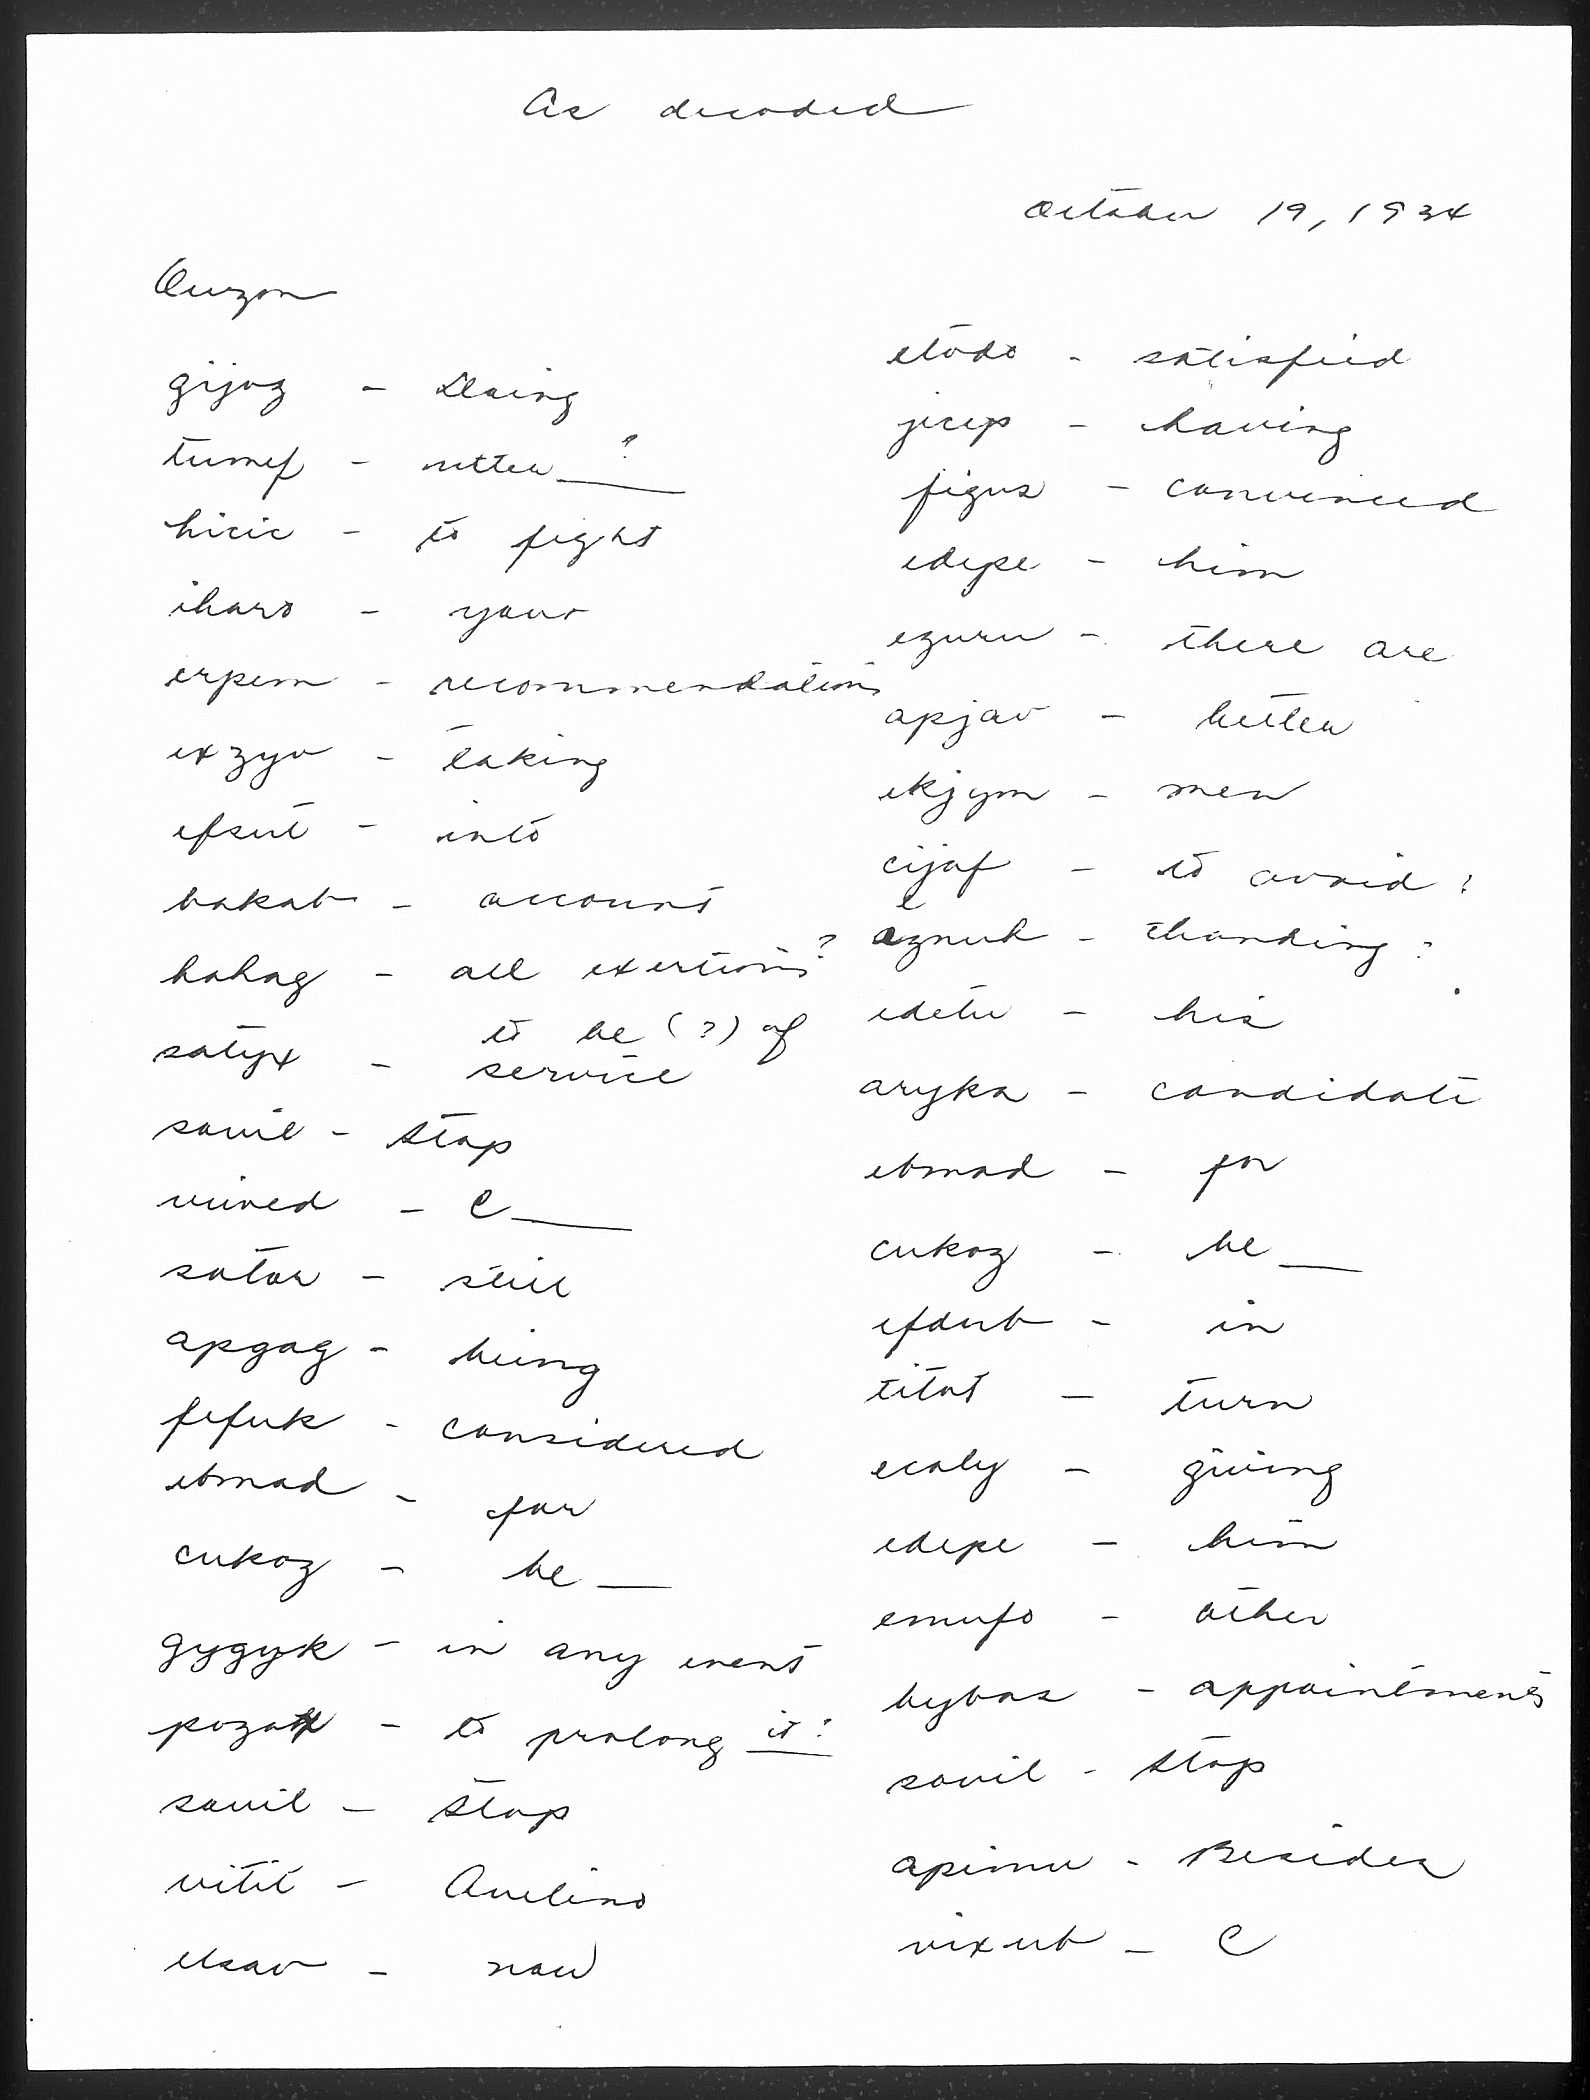 As decoded
October 19, 1934
Quezon
gijoz - Doing
tumef - utter ____?
hicic - to fight
iharo - your
erpem - recommendations
exzyv - taking
efsut - into
bakab - account
hahag - all exertions?
satyx - to be (?) of
service
sovil - stop
vived - C____
sotar - still
apgag - being
fefuk - considered
ebmad - for
cukoz - he ____
gygyk - in any event
pozox - to prolong it?
sovil - Stop
vitit - Avelino
elsav - now
etodo - satisfied
jicep - having
figus - convinced
edepe - him
ezuru - there are
apjav - better
ekjym - men
cijof - to avoid ?
eznuh - standing ?
edetu - his
arypka - candidate
ebmad - for
cukoz - he ___
efdub - in
titot - turn
ecaly - giving
edepe - him
emufo - other
bybas - appointments
sovil - stop
apimu - Besides
vixub - C